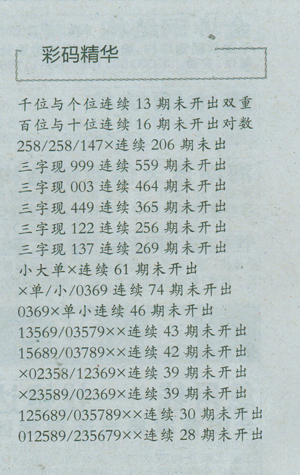 彩码精华
千位与个位连续 13 期未开出双重
百位与十位连续 16 期未开出对数
258/258/147×连续 206 期未出
三字现 999 连续 559 期未开出
三字现 003 连续 464 期未开出
三字现 449 连续 365 期未开出
三字现 122 连续 256 期未开出
三字现 137 连续 269 期未开出
小大单×连续 61 期未开出
×单/小/0369 连续 74 期未开出
0369×单小连续 46 期未开出
13569/03579××连续 43 期未开出
15689/03789××连续 42 期未开出
×02358/12369×连续 39 期未开出
×23589/02369×连续 39 期未开出
125689/035789××连续 30 期未开出
012589/235679××连续 28 期未开出